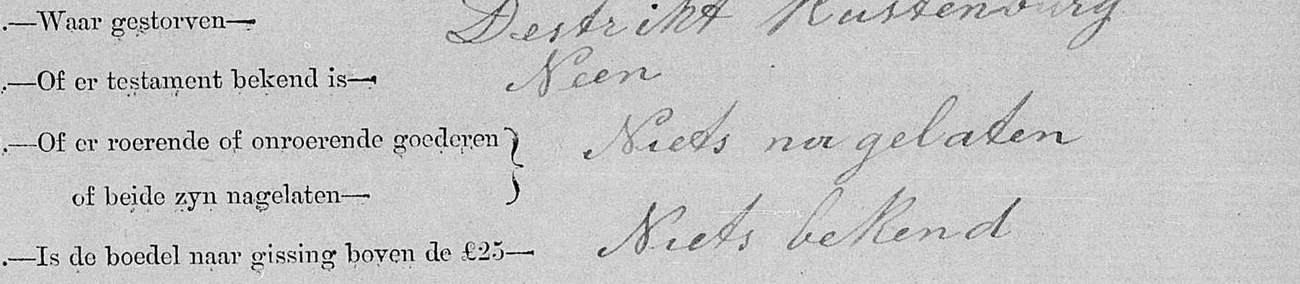 .—Waar gestorven— Destrikt Rustenburg
.—Of er testament bekend is— Neen
.—Of er roerende of onroerende goederen } Niets na gelaten
of beide zyn nagelaten—
.—Is de boedel naar gissing boven de £25— Niets bekend